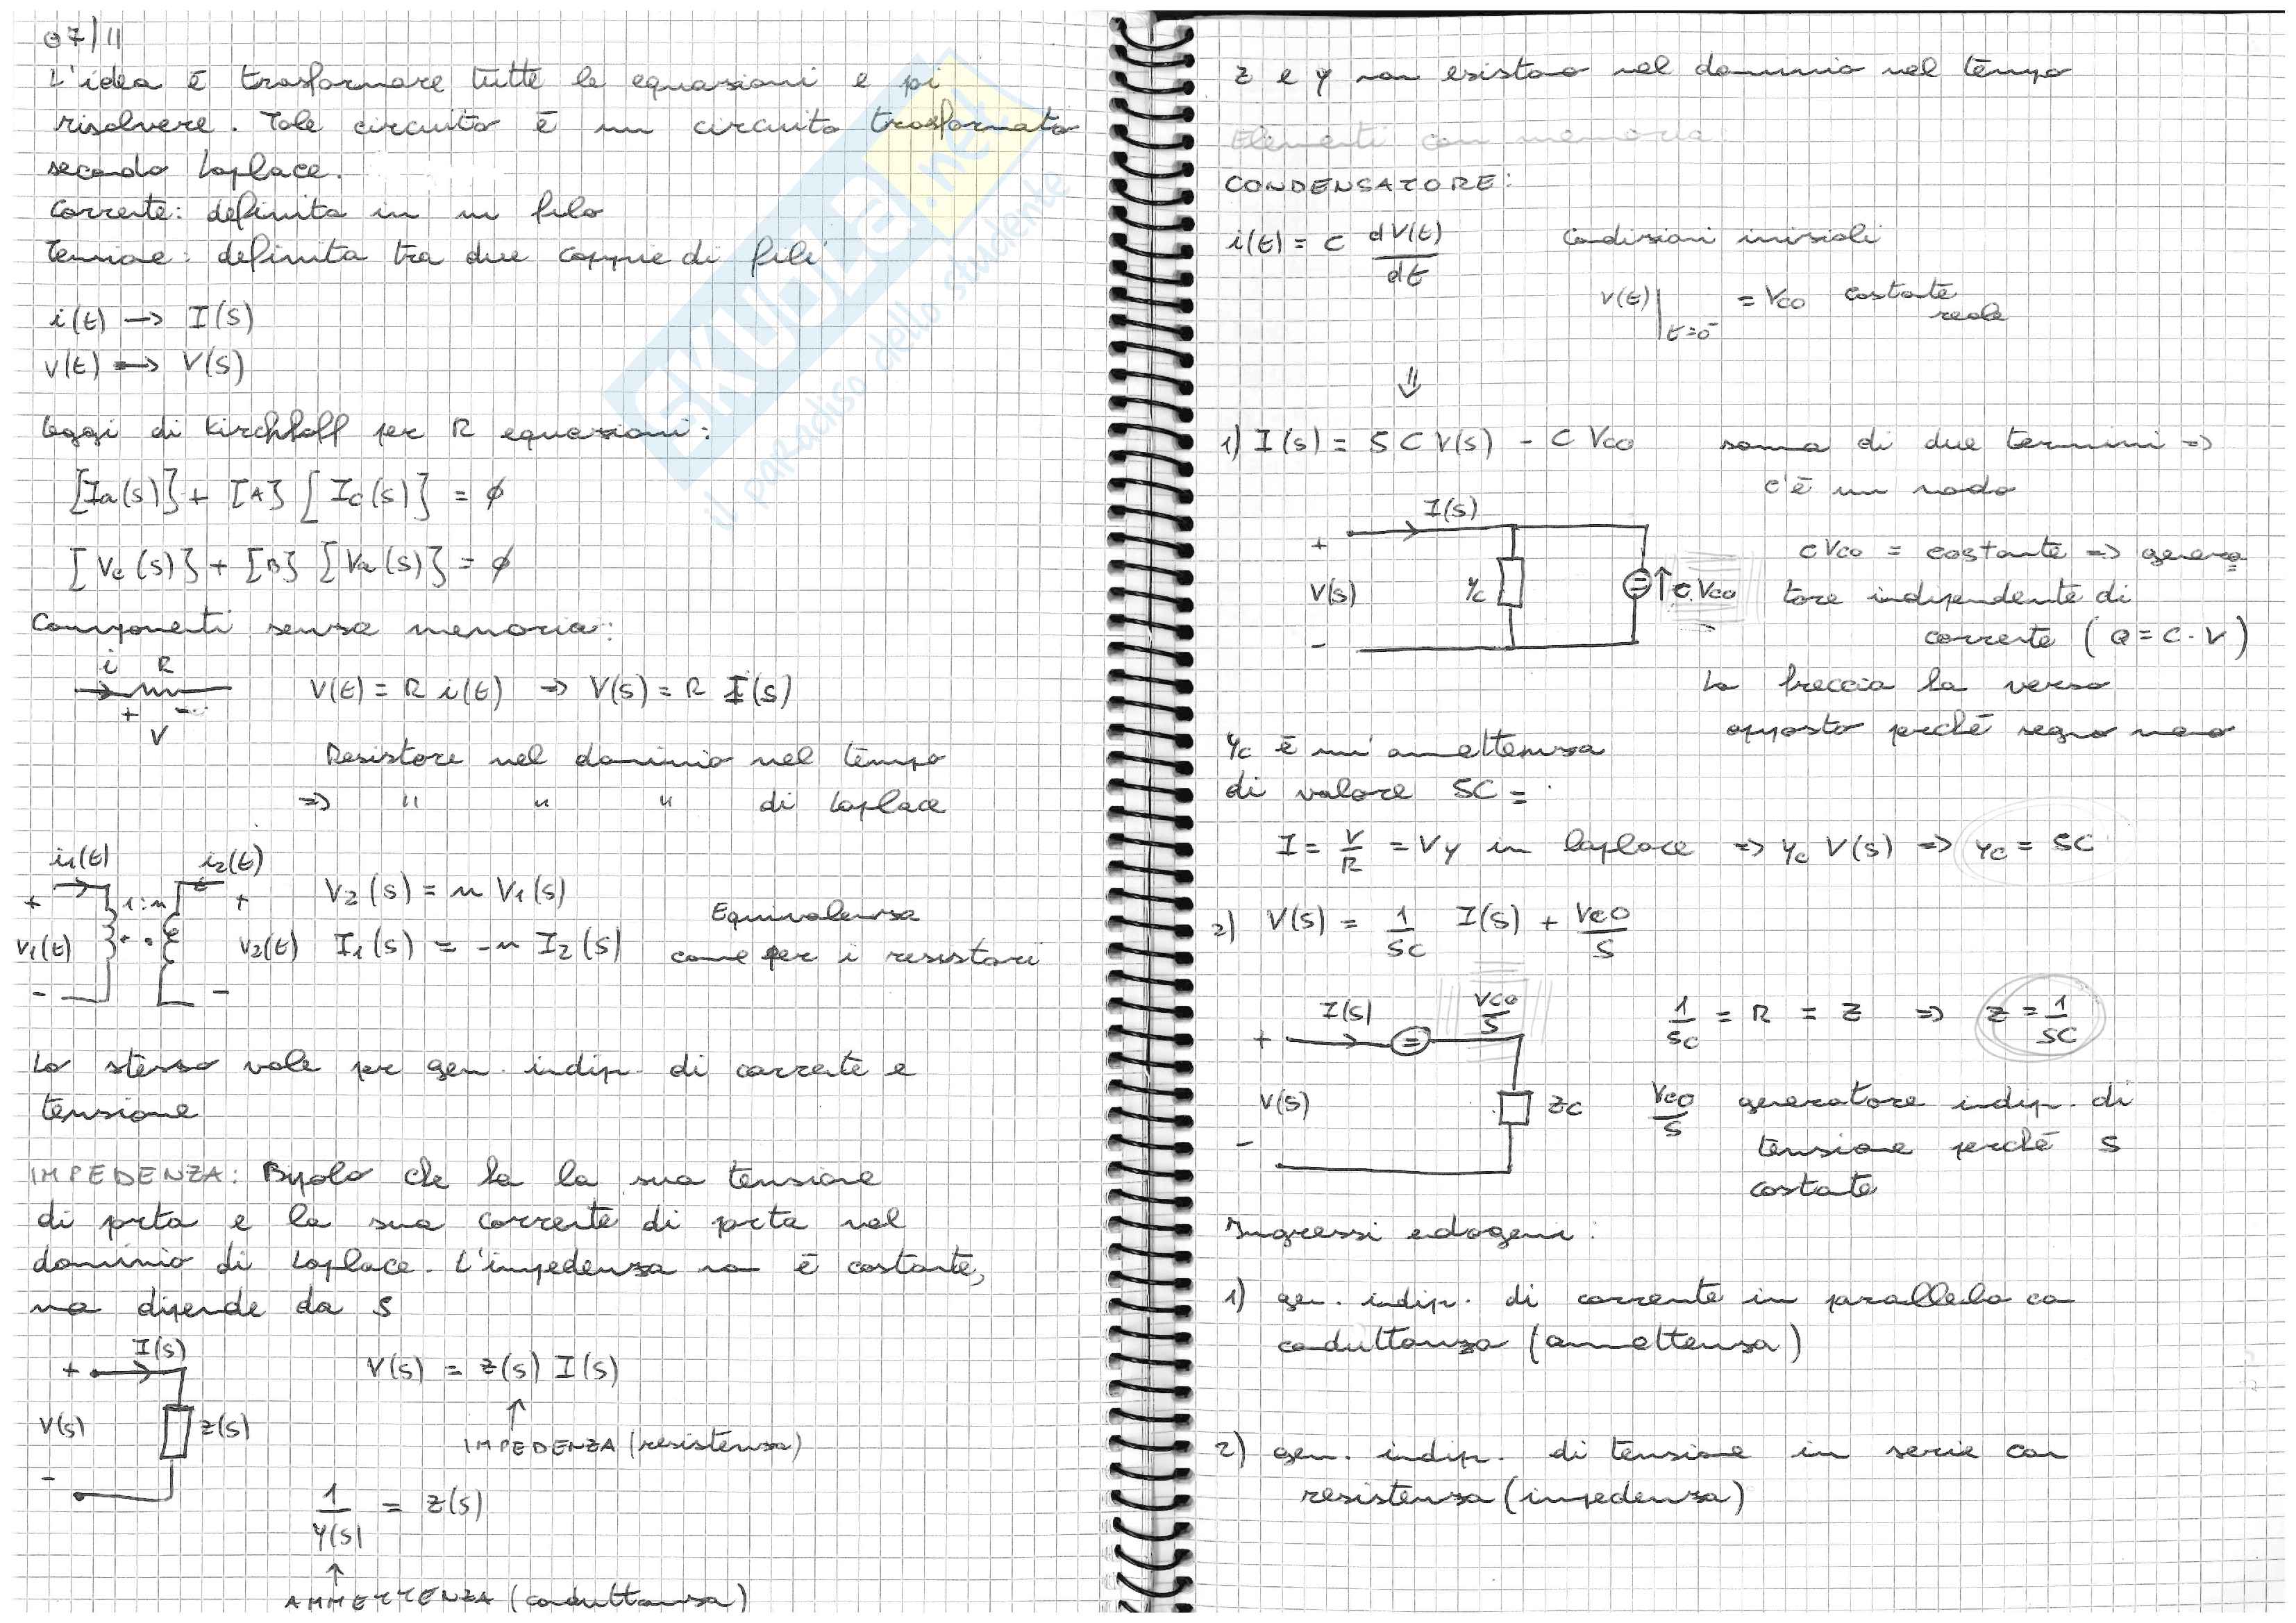 07/11
L'idea è trasformare tutte le equazioni e pi
risolvere. Tale circuito è un circuito trasformato
secondo Laplace.
Corrente: definita in un filo
Tensione: definita tra due coppie di fili
i(t) → I(s)
v(t) → V(s)
Leggi di Kirchhoff per R equazioni:
[Ia(s)] + [A] [Ic(s)] = ϕ
[Vc(s)] + [B] [Va(s)] = ϕ
Componenti senza memoria:
i R
+ -
V
V(t) = R i(t) => V(s) = R I(s)
Resistore nel dominio nel tempo
=> " " " di Laplace
i1(t) i2(t)
+ 1:n +
V1(t) V2(t)
- -
V2(s) = n V1(s)
I1(s) = -n I2(s)
Equivalenza
come per i resistori
Lo stesso vale per gen. indip. di corrente e
tensione
IMPEDENZA: Bipolo che ha la sua tensione
di porta e la sua corrente di porta nel
dominio di Laplace. L'impedenza non è costante,
ma dipende da s
I(s)
+
V(s) z(s)
-
V(s) = z(s) I(s)
↑
IMPEDENZA (resistenza)
1/Y(s) = z(s)
↑
AMMETTENZA (conduttanza)
z e y non esistono nel dominio nel tempo
Elementi con memoria:
CONDENSATORE:
i(t) = C dV(t)/dt Condizioni iniziali
V(t)|t=0⁻ = Vco costante
reale
⇓
1) I(s) = SC V(s) - C Vco somma di due termini =>
c'è un nodo
I(s)
+
V(s) Yc ↑ C Vco
-
CVco = costante => genera
tore indipendente di
corrente (Q = C·V)
La freccia ha verso
opposto perché segno meno
Yc è un'ammettenza
di valore SC =
I = V/R = VY in Laplace => Yc V(s) => Yc = SC
2) V(s) = 1/SC I(s) + Vco/S
I(s) Vco/S
+
V(s) zc
-
1/SC = R = Z => Z = 1/SC
Vco/S generatore indip. di
tensione perché S
costante
Ingressi endogeni:
1) gen. indip. di corrente in parallelo con
conduttanza (ammettenza)
2) gen. indip. di tensione in serie con
resistenza (impedenza)
SKUOLA.net
il paradiso dello studente